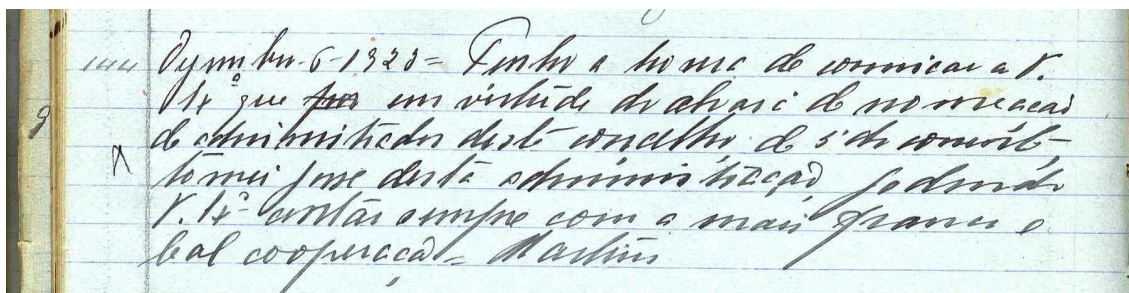 144 Dezembro-6-1923= Tenho a honra de comunicar a V.
Exª que por em virtude do alvará de nomeação
9 de administrador deste concelho de 5 do corrente
X tomei posse desta administração podendo
V. Exª contar sempre com a mais franca e
leal cooperação= Martins